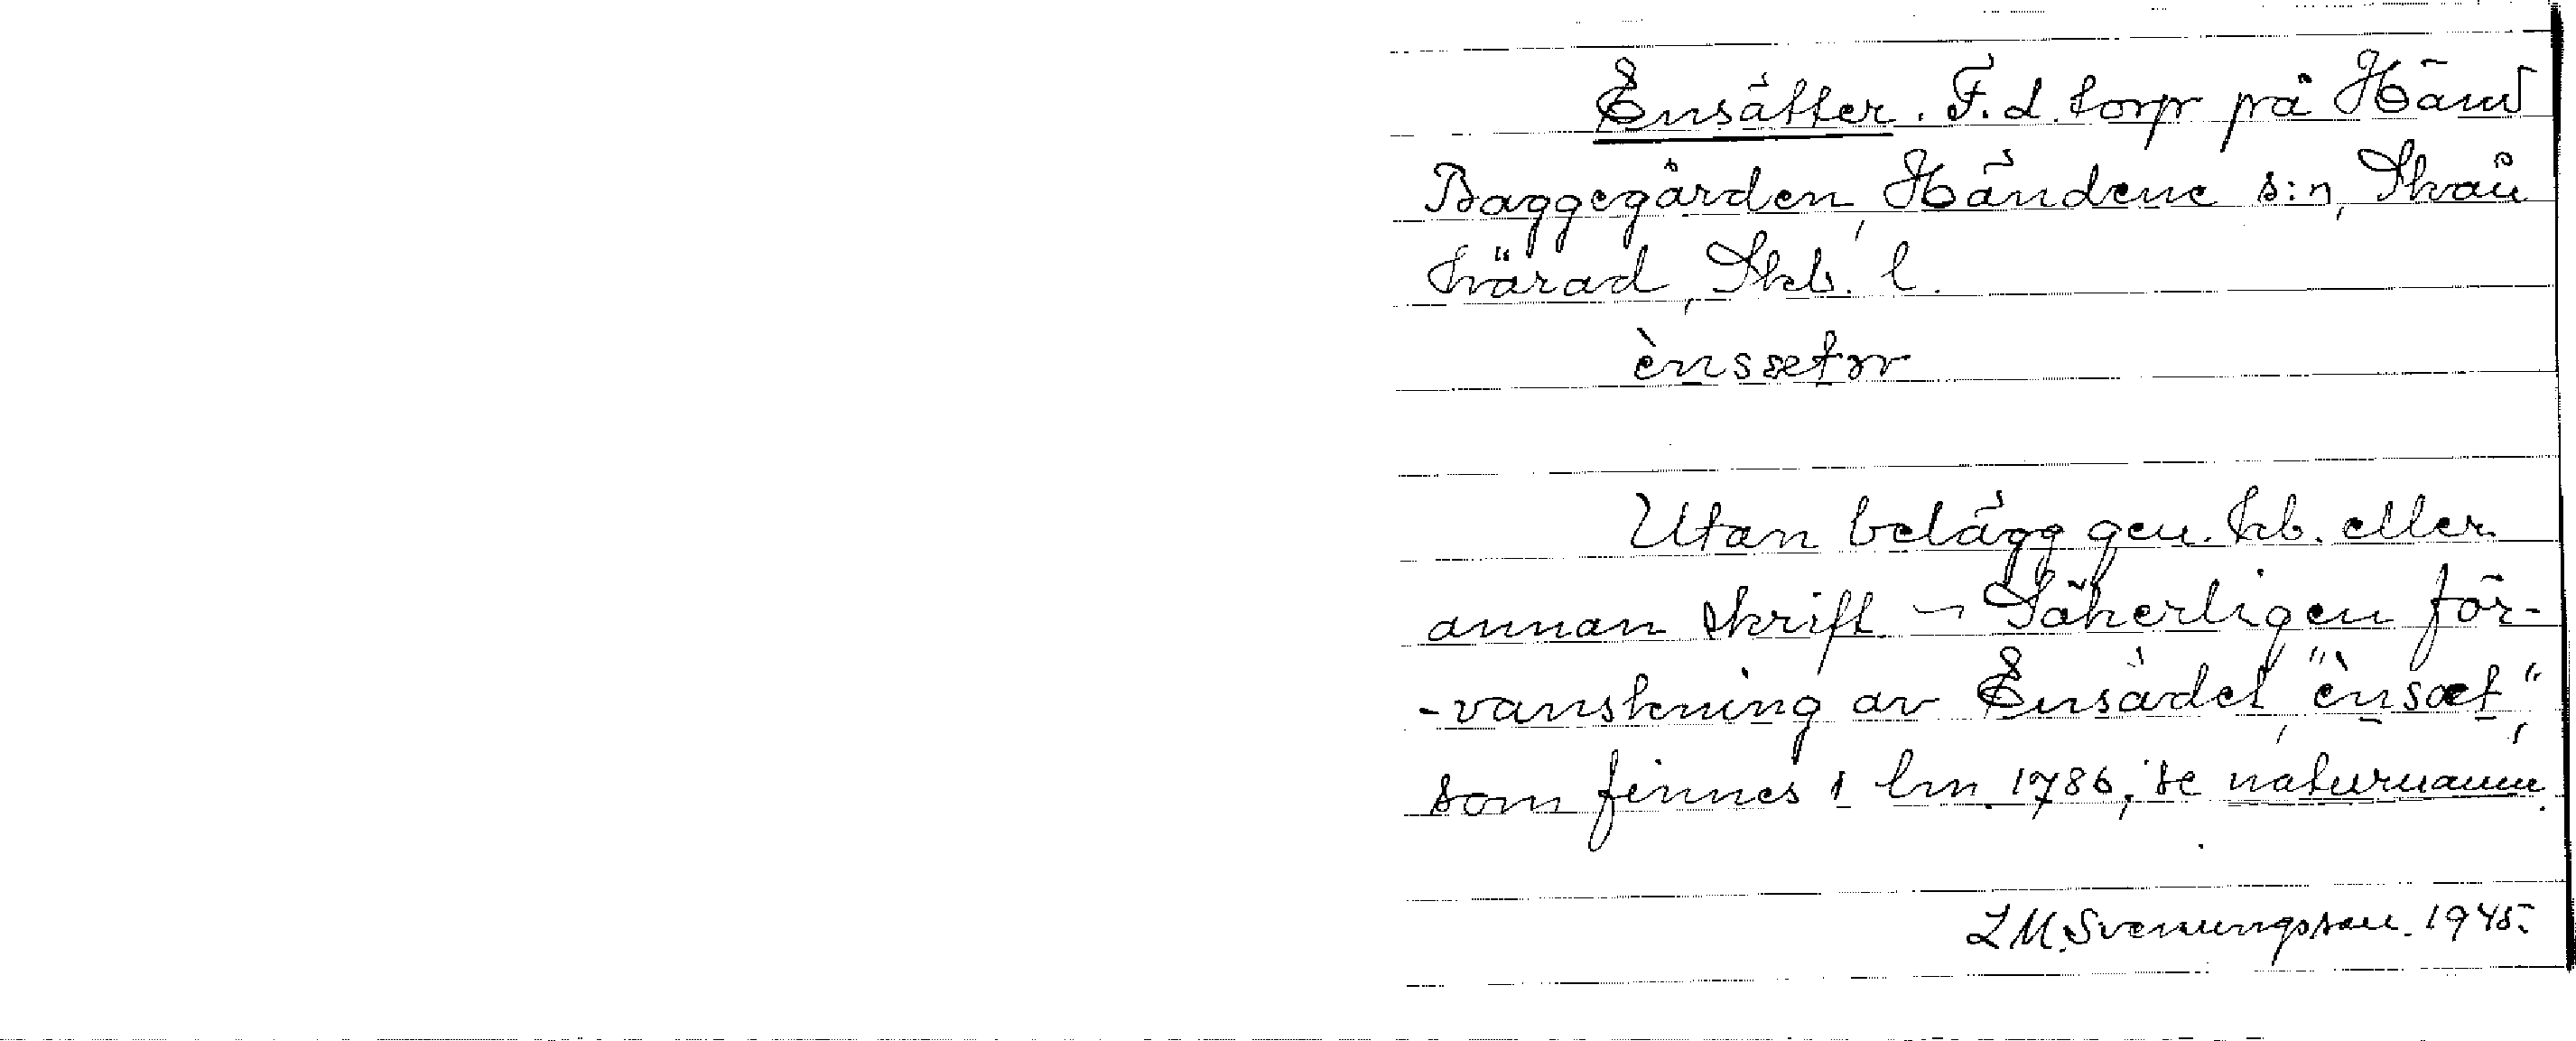 Ensätter. F. d. torp på Händ
Baggegården, Händene s:n, Skån
härad, Skb. l.
ènssetər
Utan belägg gen. kb. eller
annan skrift – Säkerligen för-
-vanskning av Ensädet, "ènsæt",
som finnes i lm. 1786, se naturnamn.
L M. Svenungsson. 1945.